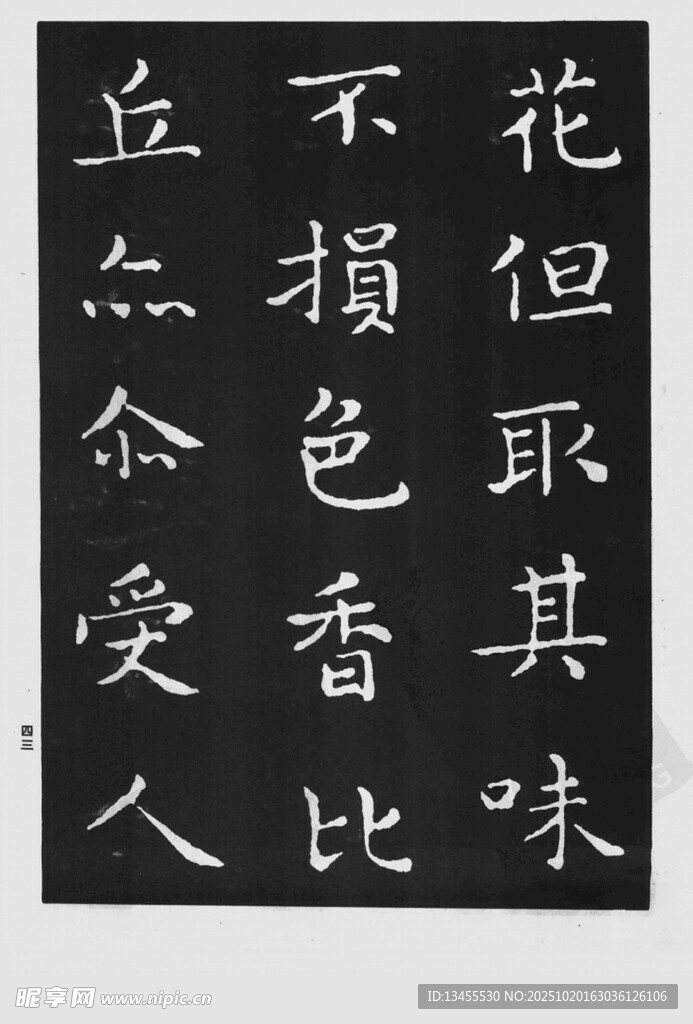 花但取其味
不損色香比
丘亦尒受人
四三
昵享网 www.nipic.cn
ID:13455530 NO:20251020163036126106